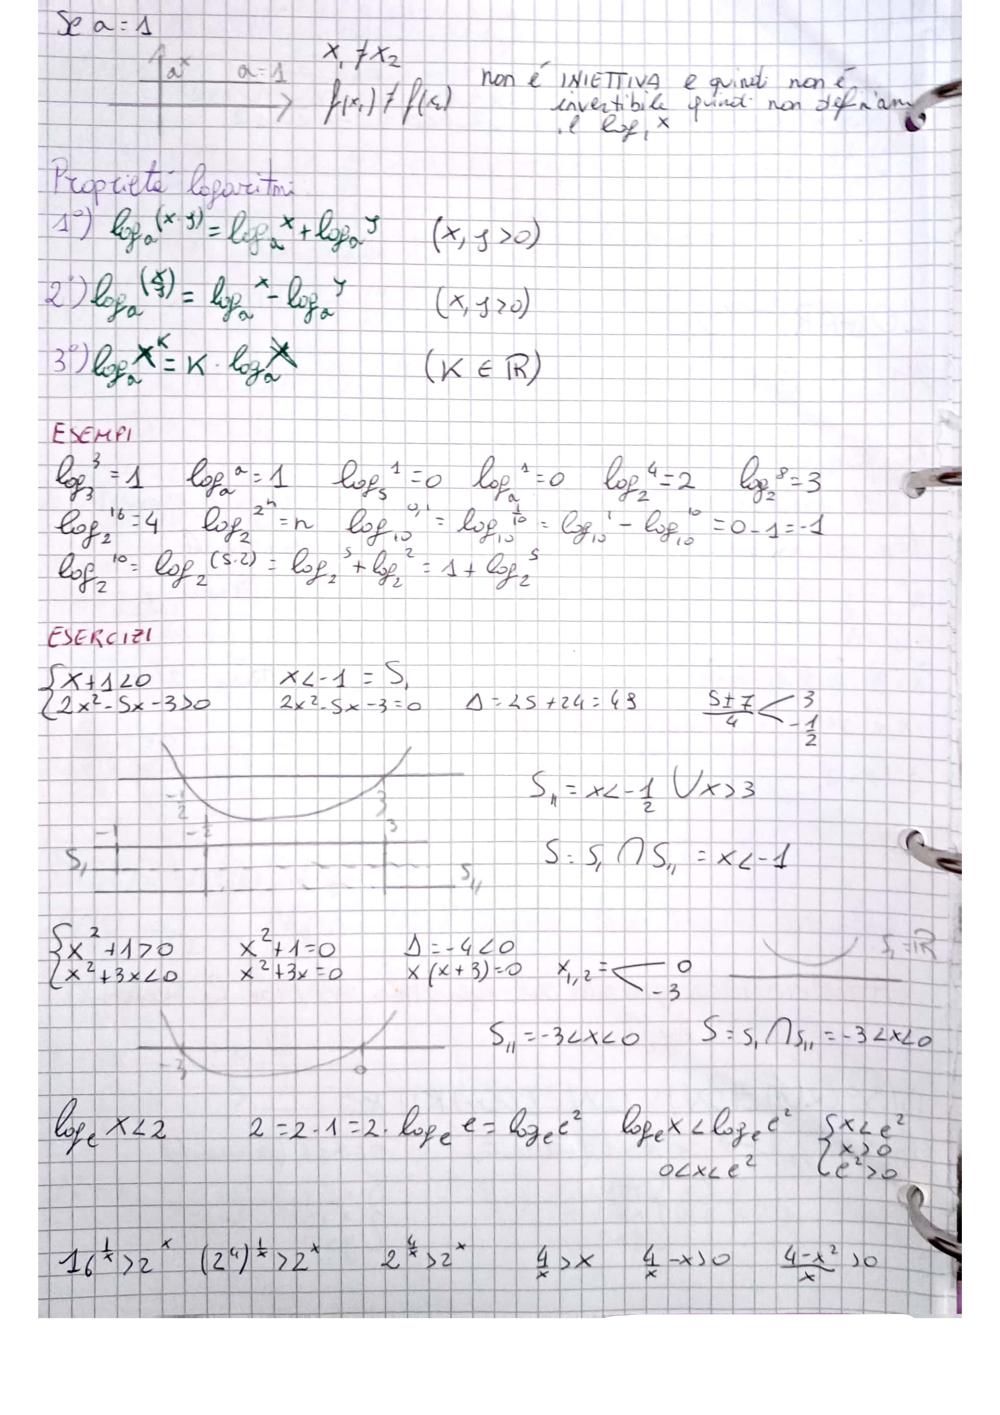 Se a=1
aˣ a=1 x₁ ≠ x₂ non é INIETTIVA e quindi non é
f(x₁) ≠ f(x₂) invertibile quindi non definiam
il log₁ x
Proprietá logaritmi
1°) logₐ(x·y) = logₐx + logₐy (x, y >0)
2°) logₐ(x/y) = logₐx - logₐy (x, y >0)
3°) logₐxᴷ = K · logₐx (K ∈ ℝ)
ESEMPI
log₃3 = 1 logₐa = 1 log₅1 = 0 logₐ1 = 0 log₂4 = 2 log₂8 = 3
log₂16 = 4 log₂2ⁿ = n log₁₀0,1 = log₁₀1/10 = log₁₀1 - log₁₀10 = 0-1 = -1
log₂10 = log₂(5·2) = log₂5 + log₂2 = 1 + log₂5
ESERCIZI
{x+1<0 x<-1 = S₁
{2x²-5x-3>0 2x²-5x-3=0 Δ=25+24=49 (5±7)/4 < 3 -1/2
-1/2 3 S₁₁ = x<-1/2 ∪ x>3
-1 -1/2 3
S₁ S₁₁ S = S₁ ∩ S₁₁ = x<-1
{x²+1>0 x²+1=0 Δ=-4<0 S₁=ℝ
{x²+3x<0 x²+3x=0 x(x+3)=0 x₁,₂ = < 0 -3
-3 0 S₁₁ = -3<x<0 S = S₁ ∩ S₁₁ = -3<x<0
logₑ x<2 2=2·1=2·logₑ e = logₑ e² logₑ x < logₑ e² {x<e²
{x>0
0<x<e² {e²>0
16^(1/x) > 2ˣ (2⁴)^(1/x) > 2ˣ 2^(4/x) > 2ˣ 4/x > x 4/x - x>0 (4-x²)/x >0